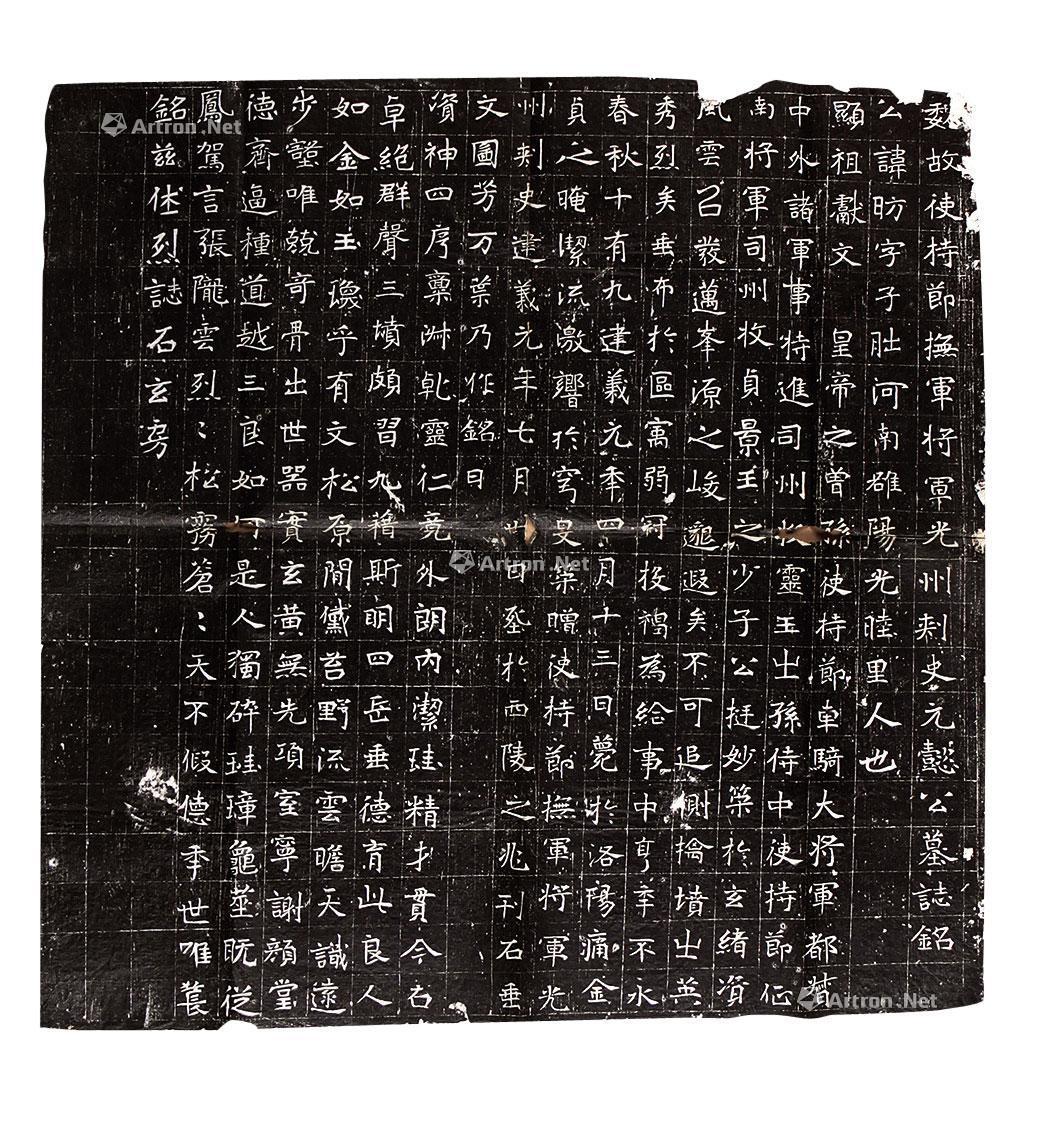 魏故使持節撫軍將軍光州刺史元懿公墓誌銘
公諱昉字子朏河南雒陽光睦里人也
顯祖獻文 皇帝之曾孫使持節車騎大將軍都督
中外諸軍事特進司州牧靈王之孫侍中使持節征
南將軍司州牧貞景王之少子公挺妙築於玄緒資
風雲召發邁峯源之峻邈遐矣不可追測擒墳出英
秀烈矣垂布於區㝢弱冠投褐為給事中享年不永
春秋十有九建義元年四月十三日薨於洛陽痛金
貞之晻潔流激響於穹旻策贈使持節撫軍將軍光
州刺史建義元年七月廿日塟於西陵之兆刊石垂
文圖芳万葉乃作銘曰
資神四序稟淋乹靈仁亮外朗內潔珪精才貫今古
卓絕群聲三墳頗習九籀斯明四岳垂德育此良人
如金如玉瓊乎有文松原間儀苔野流雲瞻天識遠
步唯兢奇骨出世器實玄黃無先項室寧謝顏堂
德齊逼種道越三良如何是人獨碎珪璋龜莖既從
鳳駕言張隴雲烈〻松霧蒼〻天不假德季世唯長
銘茲休烈誌石玄房
Artron.Net
Artron.Net
Artron.Net